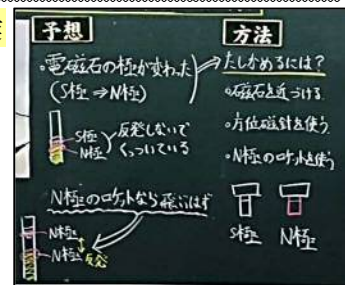 予想
・電磁石の極が変わった
(S極⇒N極)
S極
N極
反発しないで
くっついている
N極のロケットなら飛ぶはず
N極
N極
反発
方法
たしかめるには?
・磁石を近づける
・方位磁針を使う
・N極のロケットを使う
S極 N極